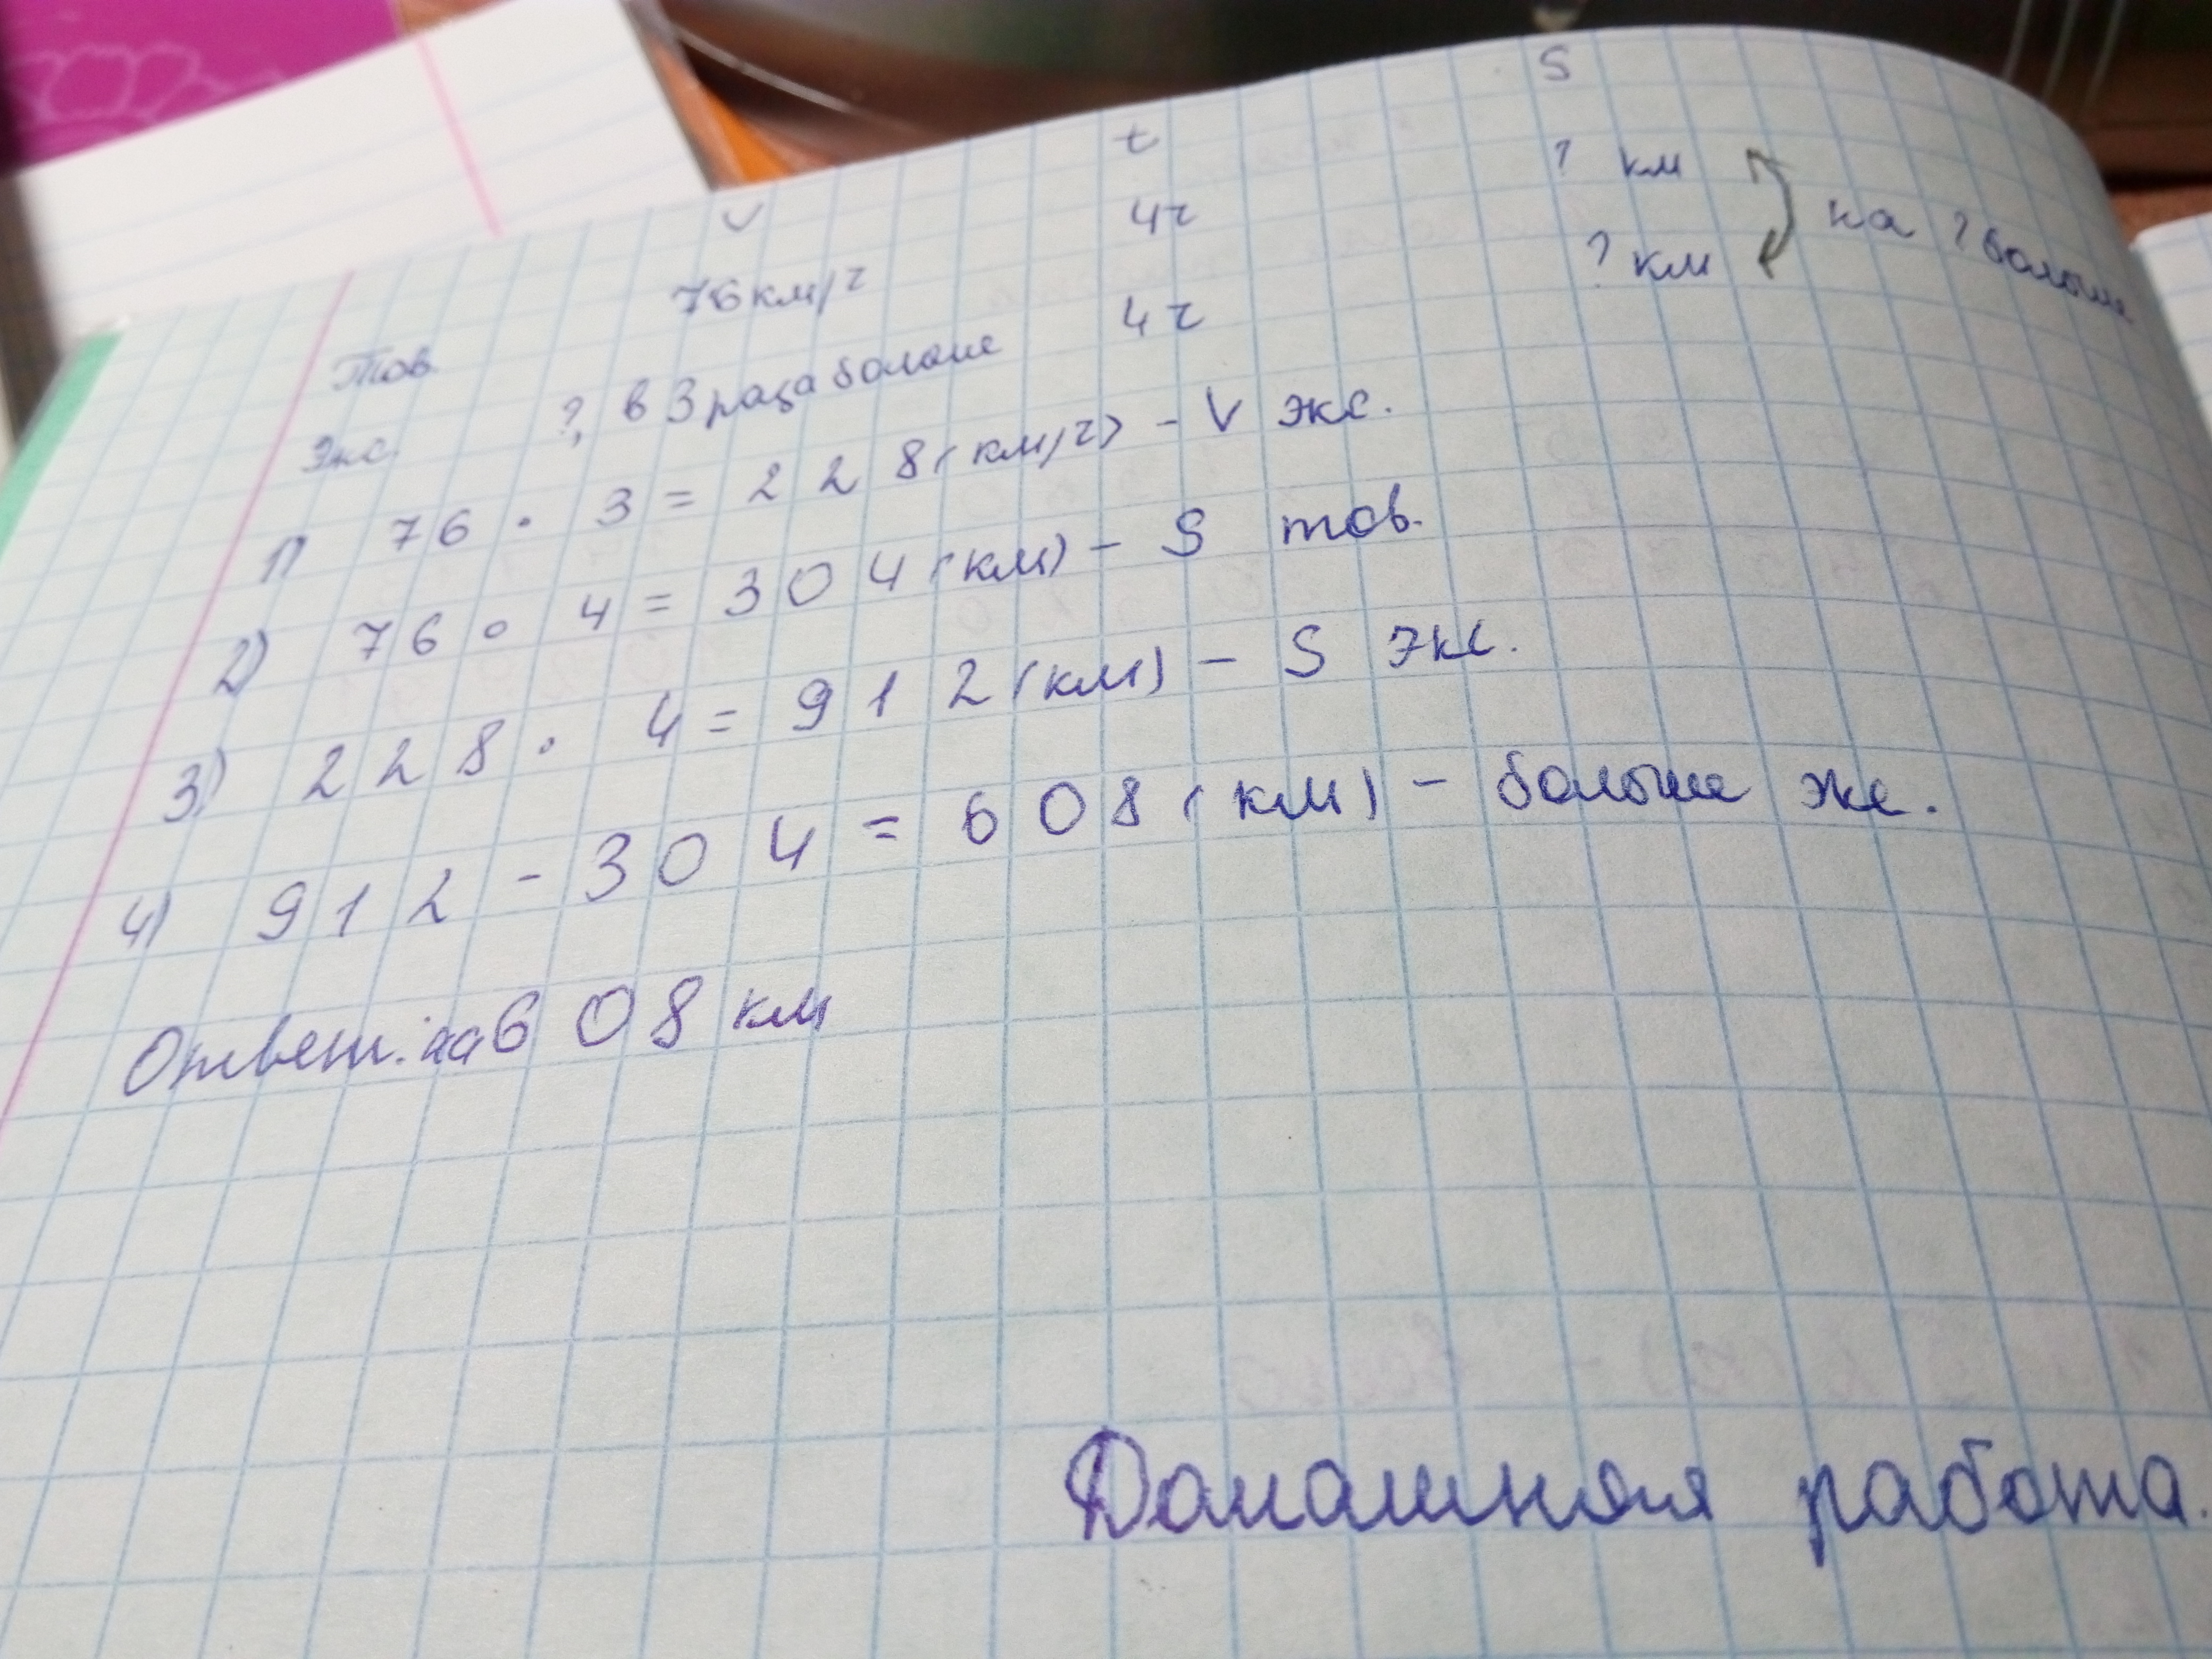 V t S
Тов. 76 км/ч 4ч ? км
Экс. ?, в 3 раза больше 4 ч ? км на ? больше
1) 76 · 3 = 228 (км/ч) - V экс.
2) 76 · 4 = 304 (км) - S тов.
3) 228 · 4 = 912 (км) - S экс.
4) 912 - 304 = 608 (км) - больше эк.
Ответ: на 608 км
Домашняя работа.